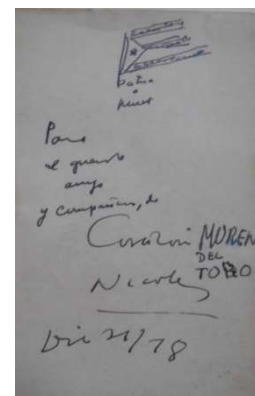 Patria
o
Muerte
Para
el querido
amigo
y compañero, de
Corazón MOREN
DEL
TORO
Nicolás
Dic 21/78